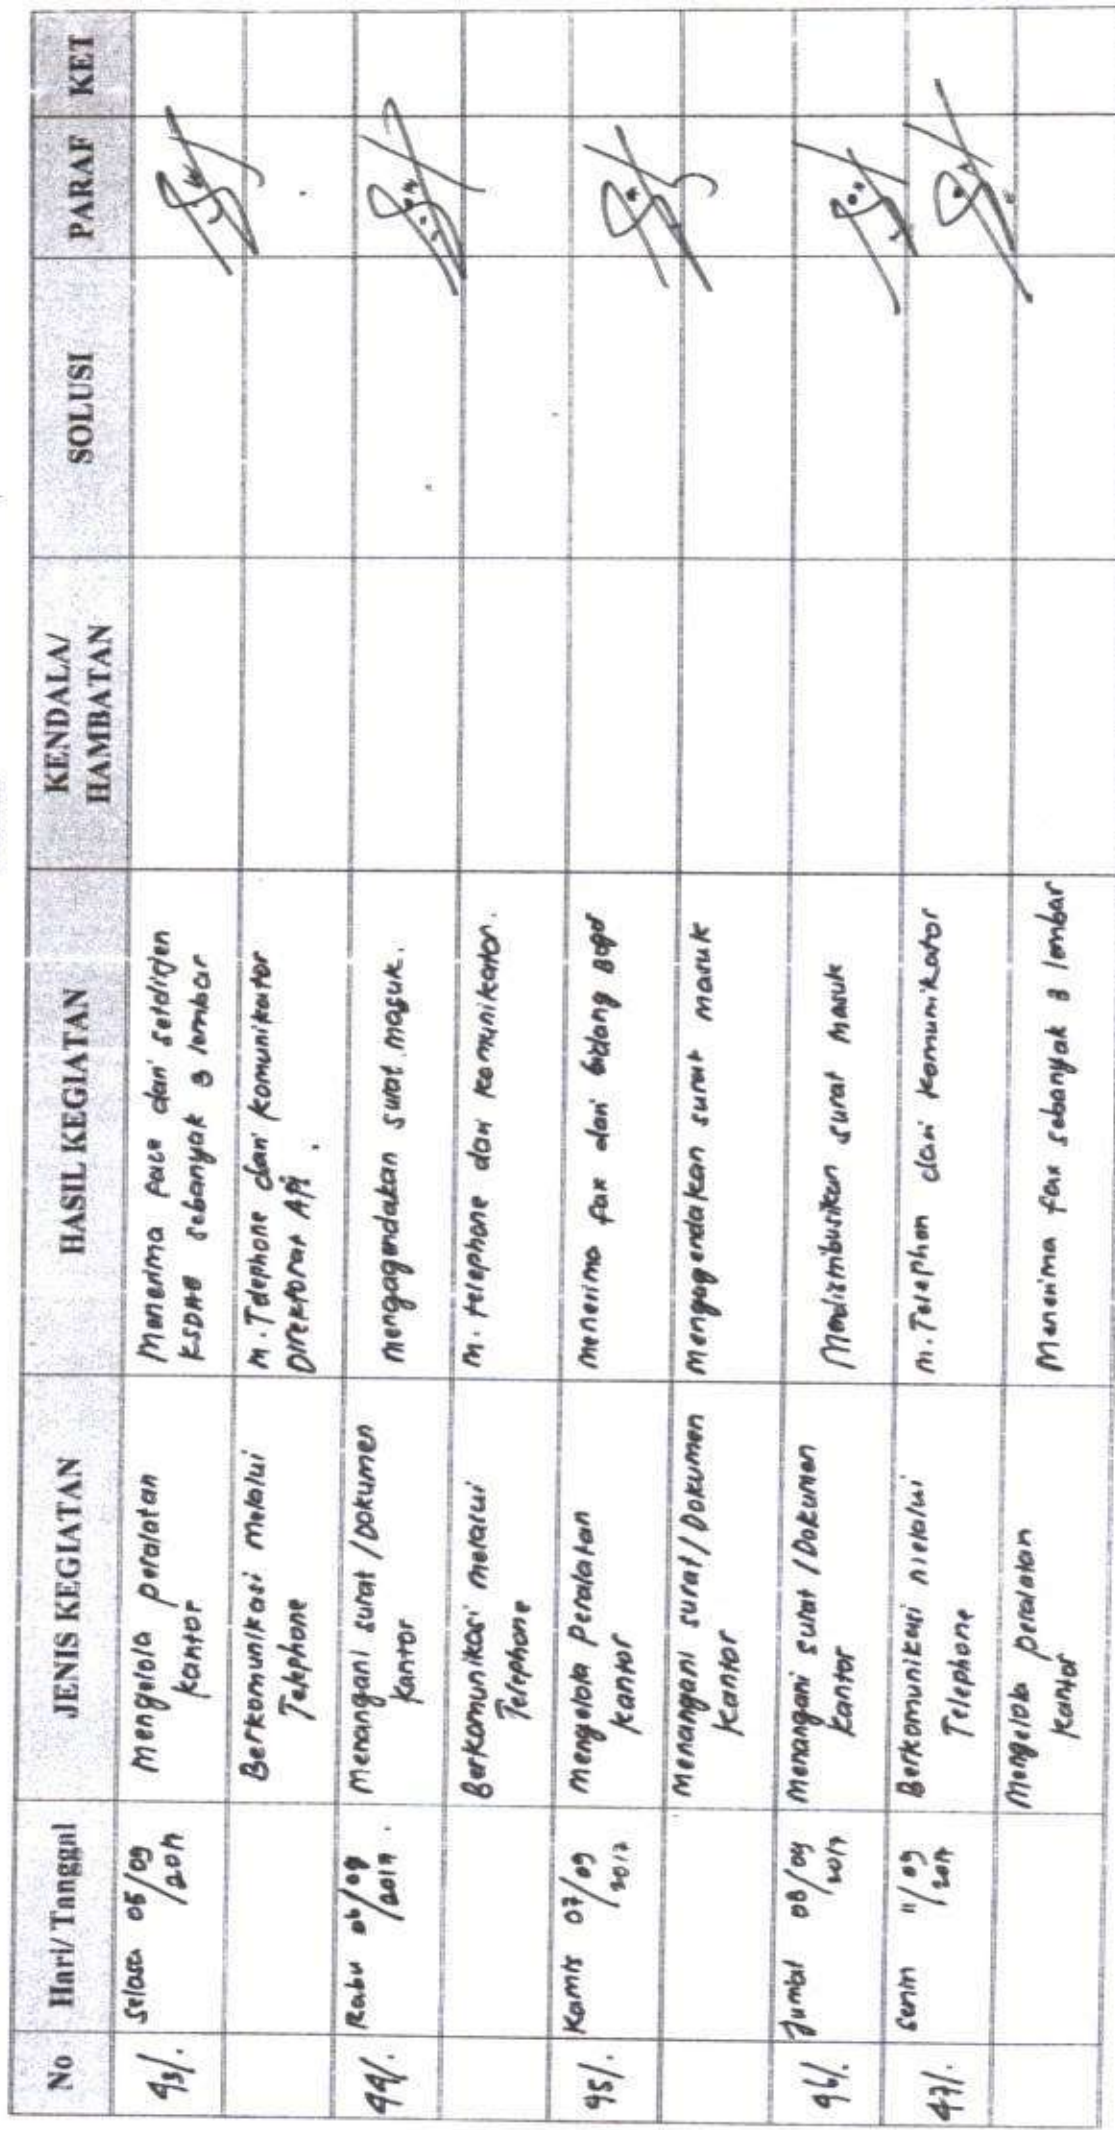 No Hari/ Tanggal JENIS KEGIATAN HASIL KEGIATAN KENDALA/ HAMBATAN SOLUSI PARAF KET
43/. Selasa 05/09 /2017 Mengelola peralatan kantor Menerima dari setditjen KSDAE sebanyak 3 lembar
Berkomunikasi melalui Telephone M. Telephone dari komunikator Direktorat API.
44/. Rabu 06/09 /2017. Menangani surat /Dokumen kantor Mengagendakan surat masuk.
Berkomunikasi melalui Telephone M. telephone dari komunikator.
45/. Kamis 07/09 2017 Mengelola Peralatan kantor Menerima fax dari bidang Bogor
Menangani surat/Dokumen kantor Mengagendakan surat masuk
46/. Jumat 08/09 2017 Menangani surat /Dokumen kantor Mendistribusikan surat masuk
47/. Senin 11/09 2017 Berkomunikasi melalui Telephone M. Telephon dari komunikator
Mengelola peralatan kantor Menerima fax sebanyak 3 lembar